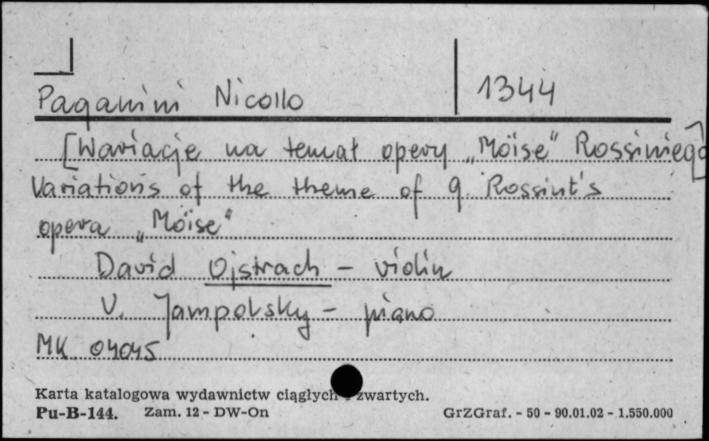 Paganini Nicollo 1344
[Wariacje na temat opery „Moïse" Rossiniego]
Variations of the theme of G. Rossint's
opera „Moïse"
David Ojstrach – violin
V. Jampolsky – piano
MK 04045
Karta katalogowa wydawnictw ciągłych i zwartych.
Pu-B-144. Zam. 12 - DW-On GrZGraf. - 50 - 90.01.02 - 1.550.000